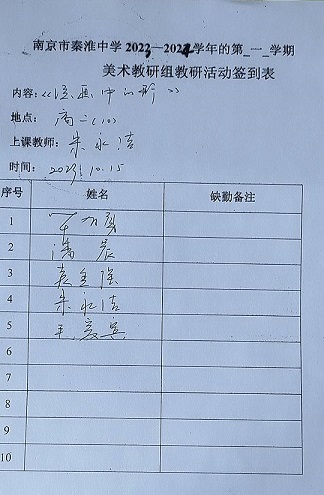 南京市秦淮中学 2023—2024学年的第_一_学期
美术教研组教研活动签到表
内容：《漫画中的形》
地点：高二(10)
上课教师：朱永洁
时间：2023.10.15
序号 姓名 缺勤备注
1
2 潘晨
3 袁金陵
4 朱永洁
5
6
7
8
9
10